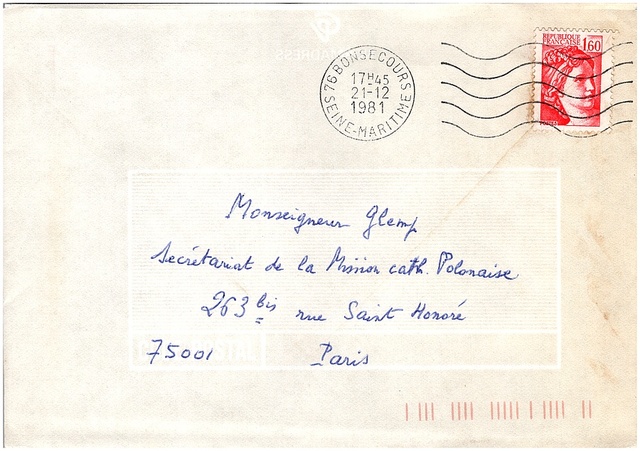 76 BONSECOURS
17H45
21-12
1981
SEINE-MARITIME
REPUBLIQUE
FRANÇAISE 1,60
Monseigneur Glemp
Secrétariat de la Mission cath. Polonaise
263 bis rue Saint Honoré
75001 Paris